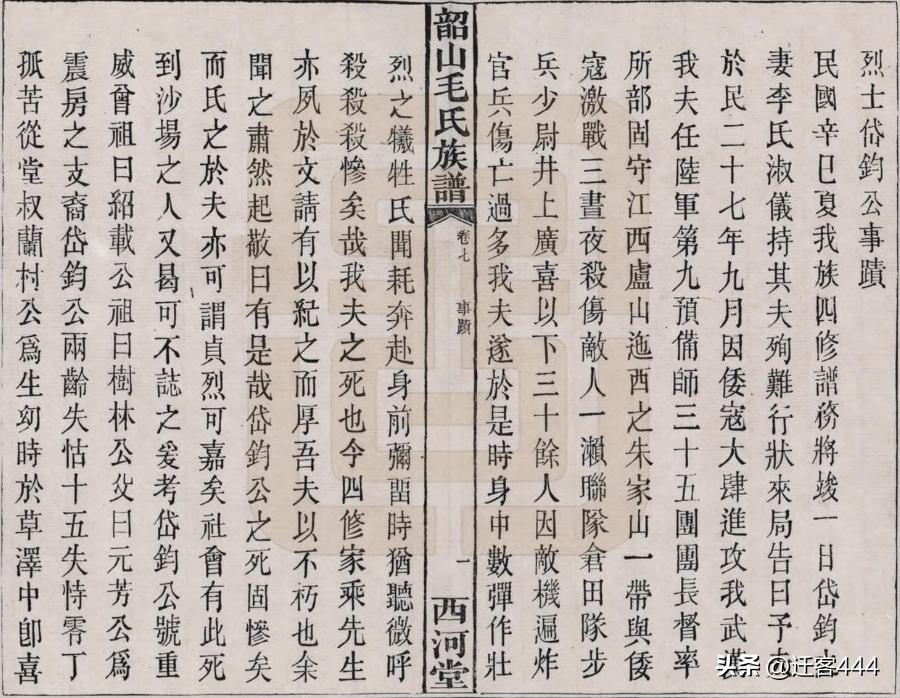 烈士岱鈞公事蹟
民國辛巳夏我族四修譜務將竣一日岱鈞
妻李氏淑儀持其夫殉難行狀來局告曰予
於民二十七年九月因倭寇大肆進攻我武漢
我夫任陸軍第九預備師三十五團團長督率
所部固守江西廬山迤西之朱家山一帶與倭
寇激戰三晝夜殺傷敵人一瀨聯隊倉田隊步
兵少尉井上廣喜以下三十餘人因敵機遍炸
官兵傷亡過多我夫遂於是時身中數彈作壯
韶山毛氏族譜
卷七
事蹟
一
西河堂
烈之犧牲氏聞耗奔赴身前彌畱時猶聽微呼
殺殺殺慘矣哉我夫之死也今四修家乘先生
亦夙於文請有以紀之而厚吾夫以不朽也余
聞之肅然起敬曰有是哉岱鈞公之死固慘矣
而氏之於夫亦可謂貞烈可嘉矣社會有此死
到沙場之人又曷可不誌之爰考岱鈞公號重
威曾祖曰紹載公祖曰樹林公父曰元芳公爲
震房之支裔岱鈞公兩齡失怙十五失恃零丁
孤苦從堂叔蘭村公爲生幼時於草澤中卽喜
头条 @迁客444